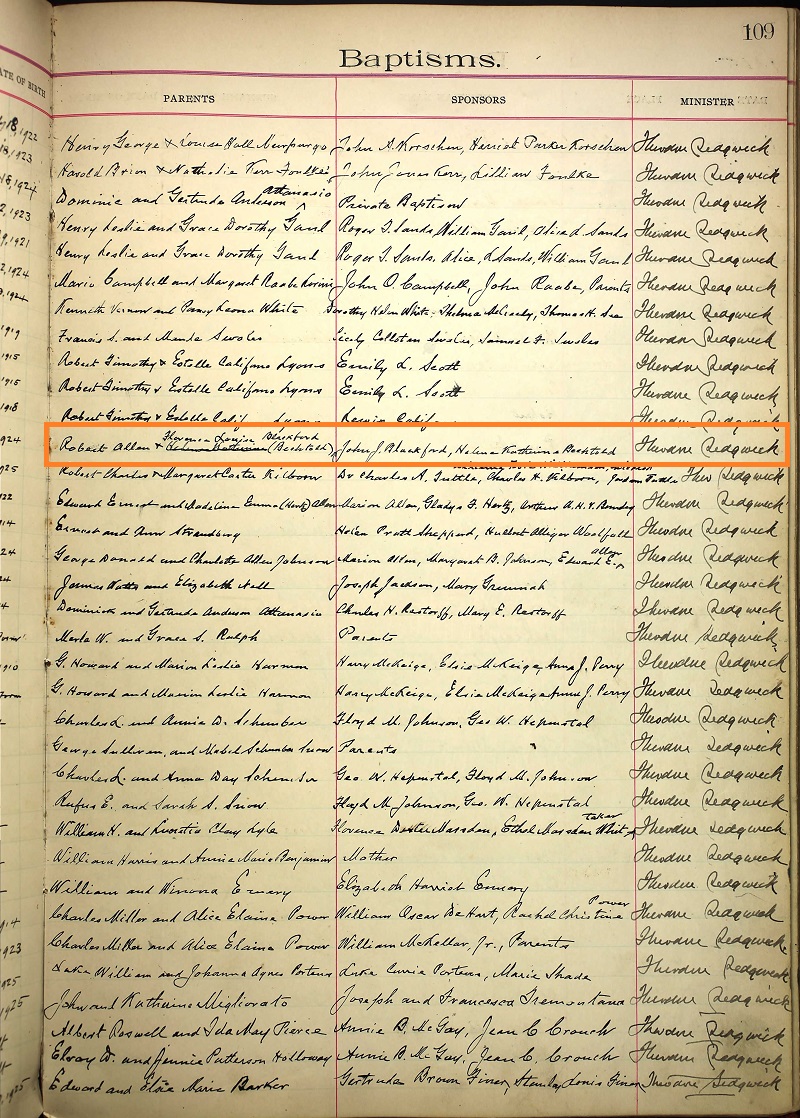 109
Baptisms.
DATE OF BIRTH PARENTS SPONSORS MINISTER
1922 Henry George & Louise Hall John A. Korschen, Harriet Parker Korschen Theodore Sedgwick
1923 Harold Brion & Nathalie Kerr Foulke John Jones Kerr, Lillian Foulke Theodore Sedgwick
1924 Dominic and Gertrude Anderson Attanasio Private Baptism Theodore Sedgwick
1923 Henry Leslie and Grace Dorothy Roger S. Sands, William Alice Sands Theodore Sedgwick
1921 Henry Leslie and Grace Dorothy Roger S. Sands, Alice Sands, William Theodore Sedgwick
1924 Mario Campbell and Margaret Raabe John O. Campbell, John Raabe, Parents Theodore Sedgwick
1924 Kenneth Vernon and Pansy Leona White Dorothy Helen White, Thelma Thomas H. Theodore Sedgwick
1919 Francis S. and Theodore Sedgwick
1915 Robert Timothy & Estelle Califano Lyons Emily L. Scott Theodore Sedgwick
1915 Robert Timothy & Estelle Califano Lyons Emily L. Scott Theodore Sedgwick
1918 Robert Timothy & Estelle Theodore Sedgwick
1924 Robert Allan & Florence Louise Blackford (Bechtold) John J. Blackford, Helena Katherine Bechtold Theodore Sedgwick
Robert Charles & Margaret Carter Kilborn Dr Charles A. Tuttle, Charles H. Kilborn, Theo Sedgwick
Edward Ernest and Madeline Emma (Hertz) Allen Marion Allen, Gladys F. Hertz, Theodore Sedgwick
Ernest and Ann Strandberg Helen Pratt Sheppard, Theodore Sedgwick
George Donald and Charlotte Allen Johnson Marion Allen, Margaret B. Johnson, Edward E. Allen Theodore Sedgwick
James Watts and Elizabeth Joseph Jackson, Mary Theodore Sedgwick
Dominick and Gertrude Anderson Attanasio Charles H. Restorff, Mary E. Restorff Theodore Sedgwick
Merle W. and Grace S. Ralph Parents Theodore Sedgwick
1910 G. Howard and Marion Leslie Harmon Harry McKeige, Elsie McKeige, Anna J. Perry Theodore Sedgwick
G. Howard and Marion Leslie Harmon Harry McKeige, Elsie McKeige Anna J. Perry Theodore Sedgwick
Charles L. and Annie D. Schumber Floyd M. Johnson, Geo W. Hepinstal Theodore Sedgwick
George Sullivan, and Mabel Schumber Snow Parents Theodore Sedgwick
Charles L. and Anna Day Geo. W. Hepinstal, Floyd M. Johnson Theodore Sedgwick
Rufus E. and Sarah S. Snow Floyd M Johnson, Geo. W. Hepinstal Theodore Sedgwick
William H. and Clay Lyle Florence Dexter Marsden, Ethel Marsden Theodore Sedgwick
William Harris and Annie Marie Benjamin Mother Theodore Sedgwick
William and Winona Emery Elizabeth Harriet Emery Theodore Sedgwick
Charles Miller and Alice Elaine Power William Oscar DeHart, Rachel Christine Power Theodore Sedgwick
1923 Charles Miller and Alice Elaine Power William McKellar, Jr., Parents Theodore Sedgwick
1925 Luke William and Johanna Agnes Porteus Luke Currie Porteus, Marie Shade Theodore Sedgwick
1925 John and Katherine Migliorato Joseph and Francesca Tramontana Theodore Sedgwick
Albert Roswell and Ida May Pierce Annie B. McGay, Jean C Crouch Theodore Sedgwick
Elroy W. and Jennie Patterson Holloway Annie B. McGay, Jean C. Crouch Theodore Sedgwick
Edward and Elsie Marie Barker Gertrude Brown Stanley Louis Theodore Sedgwick